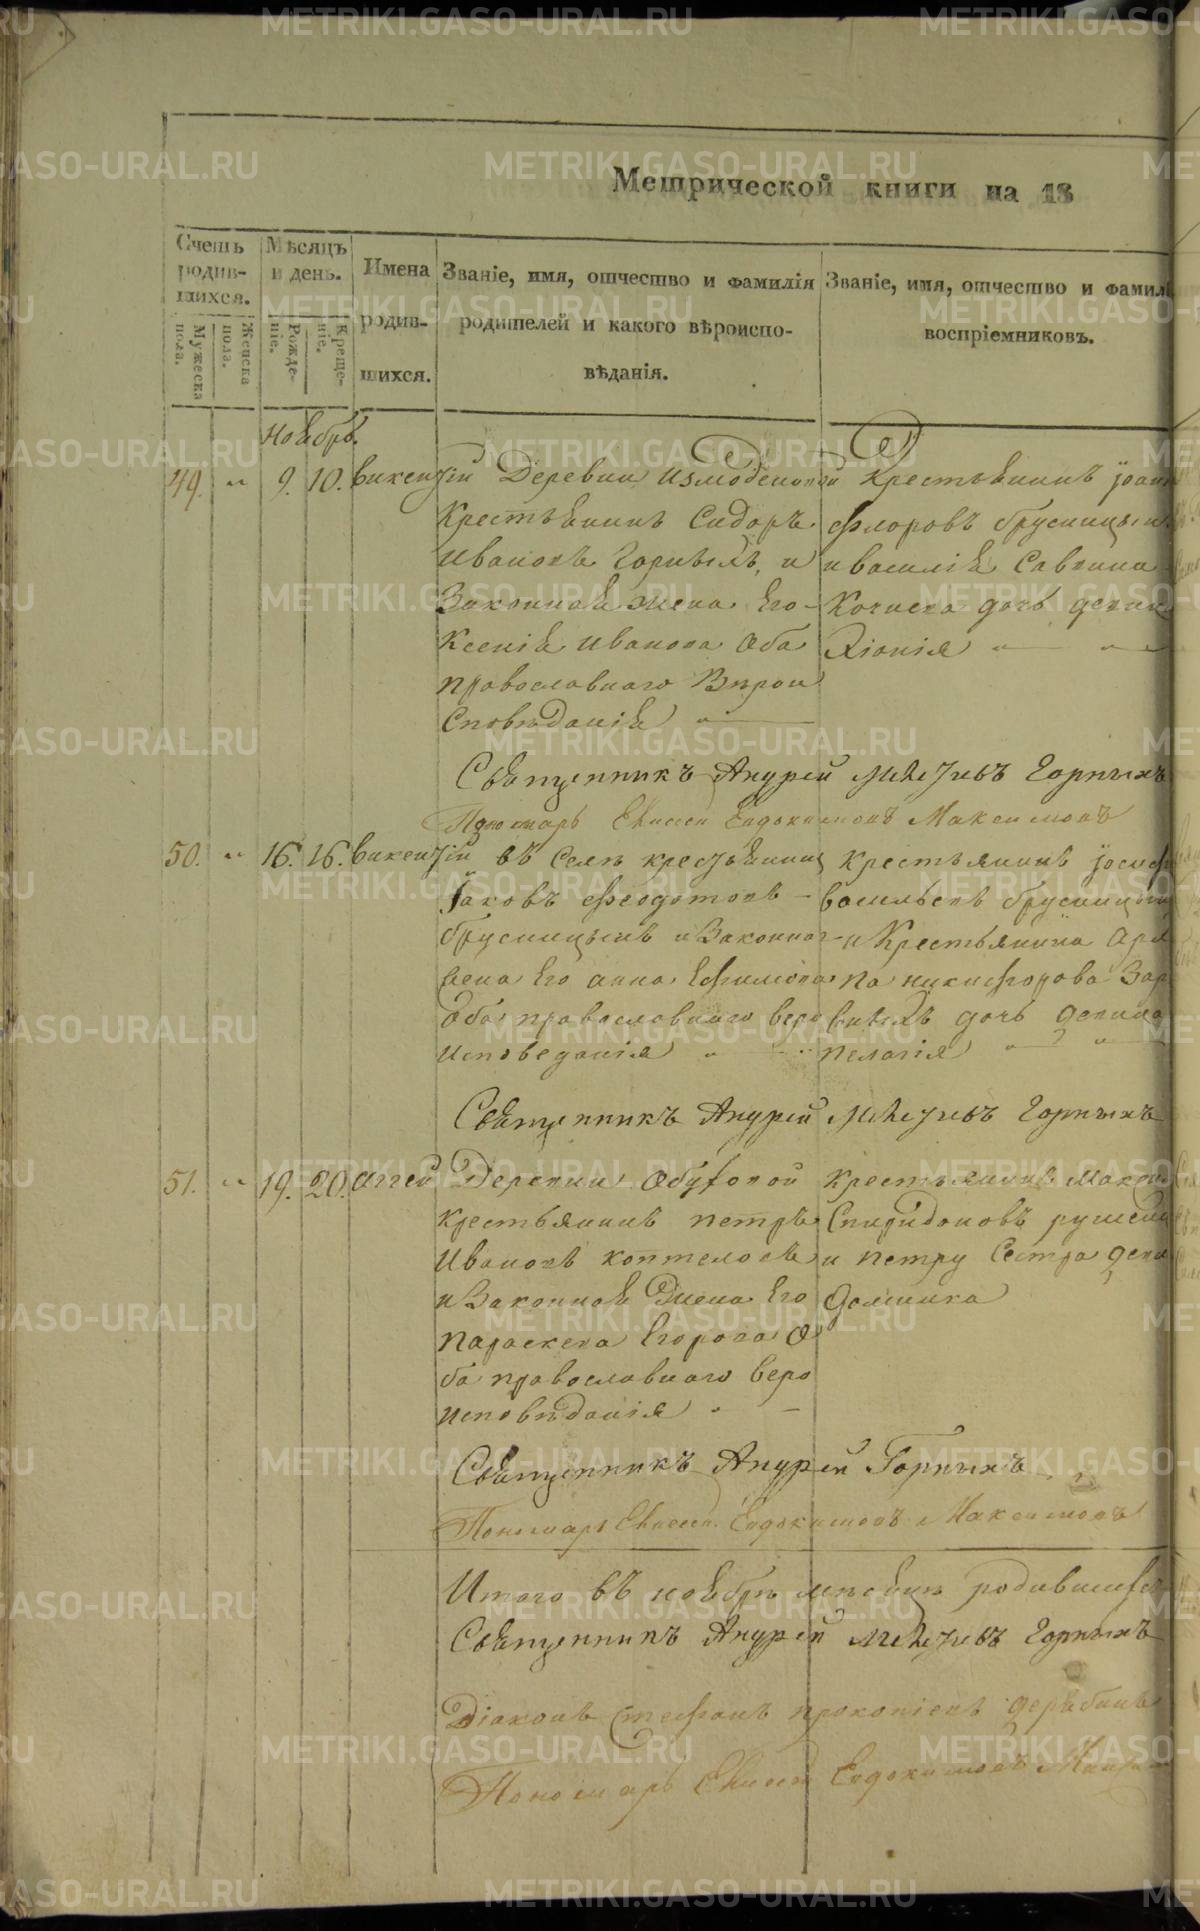 Метрической книги на 18
Счетъ родившихся.
Мужеска пола.
Женска пола.
Мѣсяцъ и день.
Рожденіе.
Крещеніе.
Имена родившихся.
Званіе, имя, отчество и фамилія родителей и какого вѣроисповѣданія.
Званіе, имя, отчество и фамил
воспріемниковъ.
Ноябрь.
49. " 9. 10. Викентій
Деревни Измоденовой
крестьянинъ Сидоръ
Ивановъ Горныхъ, и
Законная жена Его
Ксенія Иванова Оба
православнаго Вѣрои
Сповѣданія
Крестьянинъ Іоанн
Флоровъ брусницын
и василія Саввина
Кочнева дочь девица
Хіонія
Священникъ Андрей Меѳутьевъ Горныхъ
Пономарь Елисей Евдокимовъ Максимовъ
50. " 16. 16. Викентій
въ Селѣ крестьянинъ
Іаковъ Феодотовъ
брусницынъ и Законная
жена Его анна Ефимова
Оба православнаго веро
исповеданія
Крестьянинъ Іосиф
васильевъ брусницын
и Крестьянина
никифорова
дочь девица
пелагія
Священникъ Андрей Горныхъ
51. " 19. 20. Аггей
Деревни
крестьянинъ петръ
Ивановъ коптеловъ
и Законная Жена Его
параскева Егорова О
ба православнаго веро
исповѣданія
крестьянинъ Макси
Спиридоновъ
и петру Сестра деви
Домника
Священникъ Андрей Горныхъ
Пономарь Елисей Евдокимовъ Максимовъ
Итого въ ноябрѣ мѣсяцѣ родившихся
Священникъ Андрей Горныхъ
Діаконъ Стефанъ прокопіевъ дерябинъ
Пономарь Елисей Евдокимовъ
METRIKI.GASO-URAL.RU